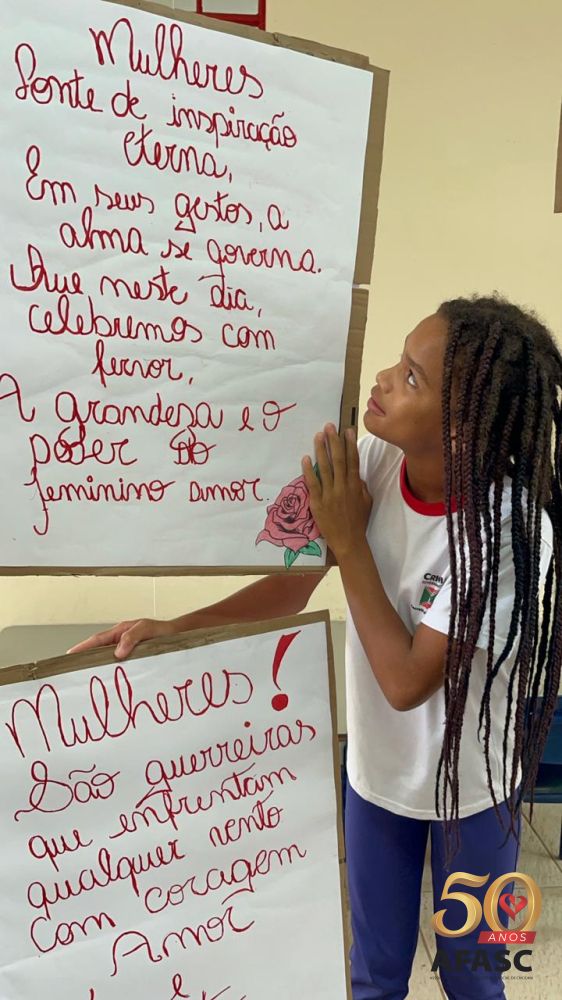 Mulheres
Fonte de inspiração
eterna,
Em seus gestos, a
alma se governa.
Que neste dia,
celebremos com
fervor,
A grandeza e o
poder do
feminino amor.
Mulheres!
São guerreiras
que enfrentam
qualquer vento
com coragem
Amor
e
50
ANOS
AFASC